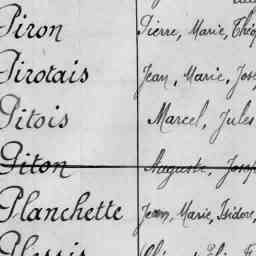 Piron Pierre, Marie, Théo
Pirotais Jean, Marie, Jos
Pitois Marcel, Jules
Piton Auguste, Josep
Planchette Jean, Marie, Isidore,
Plessis